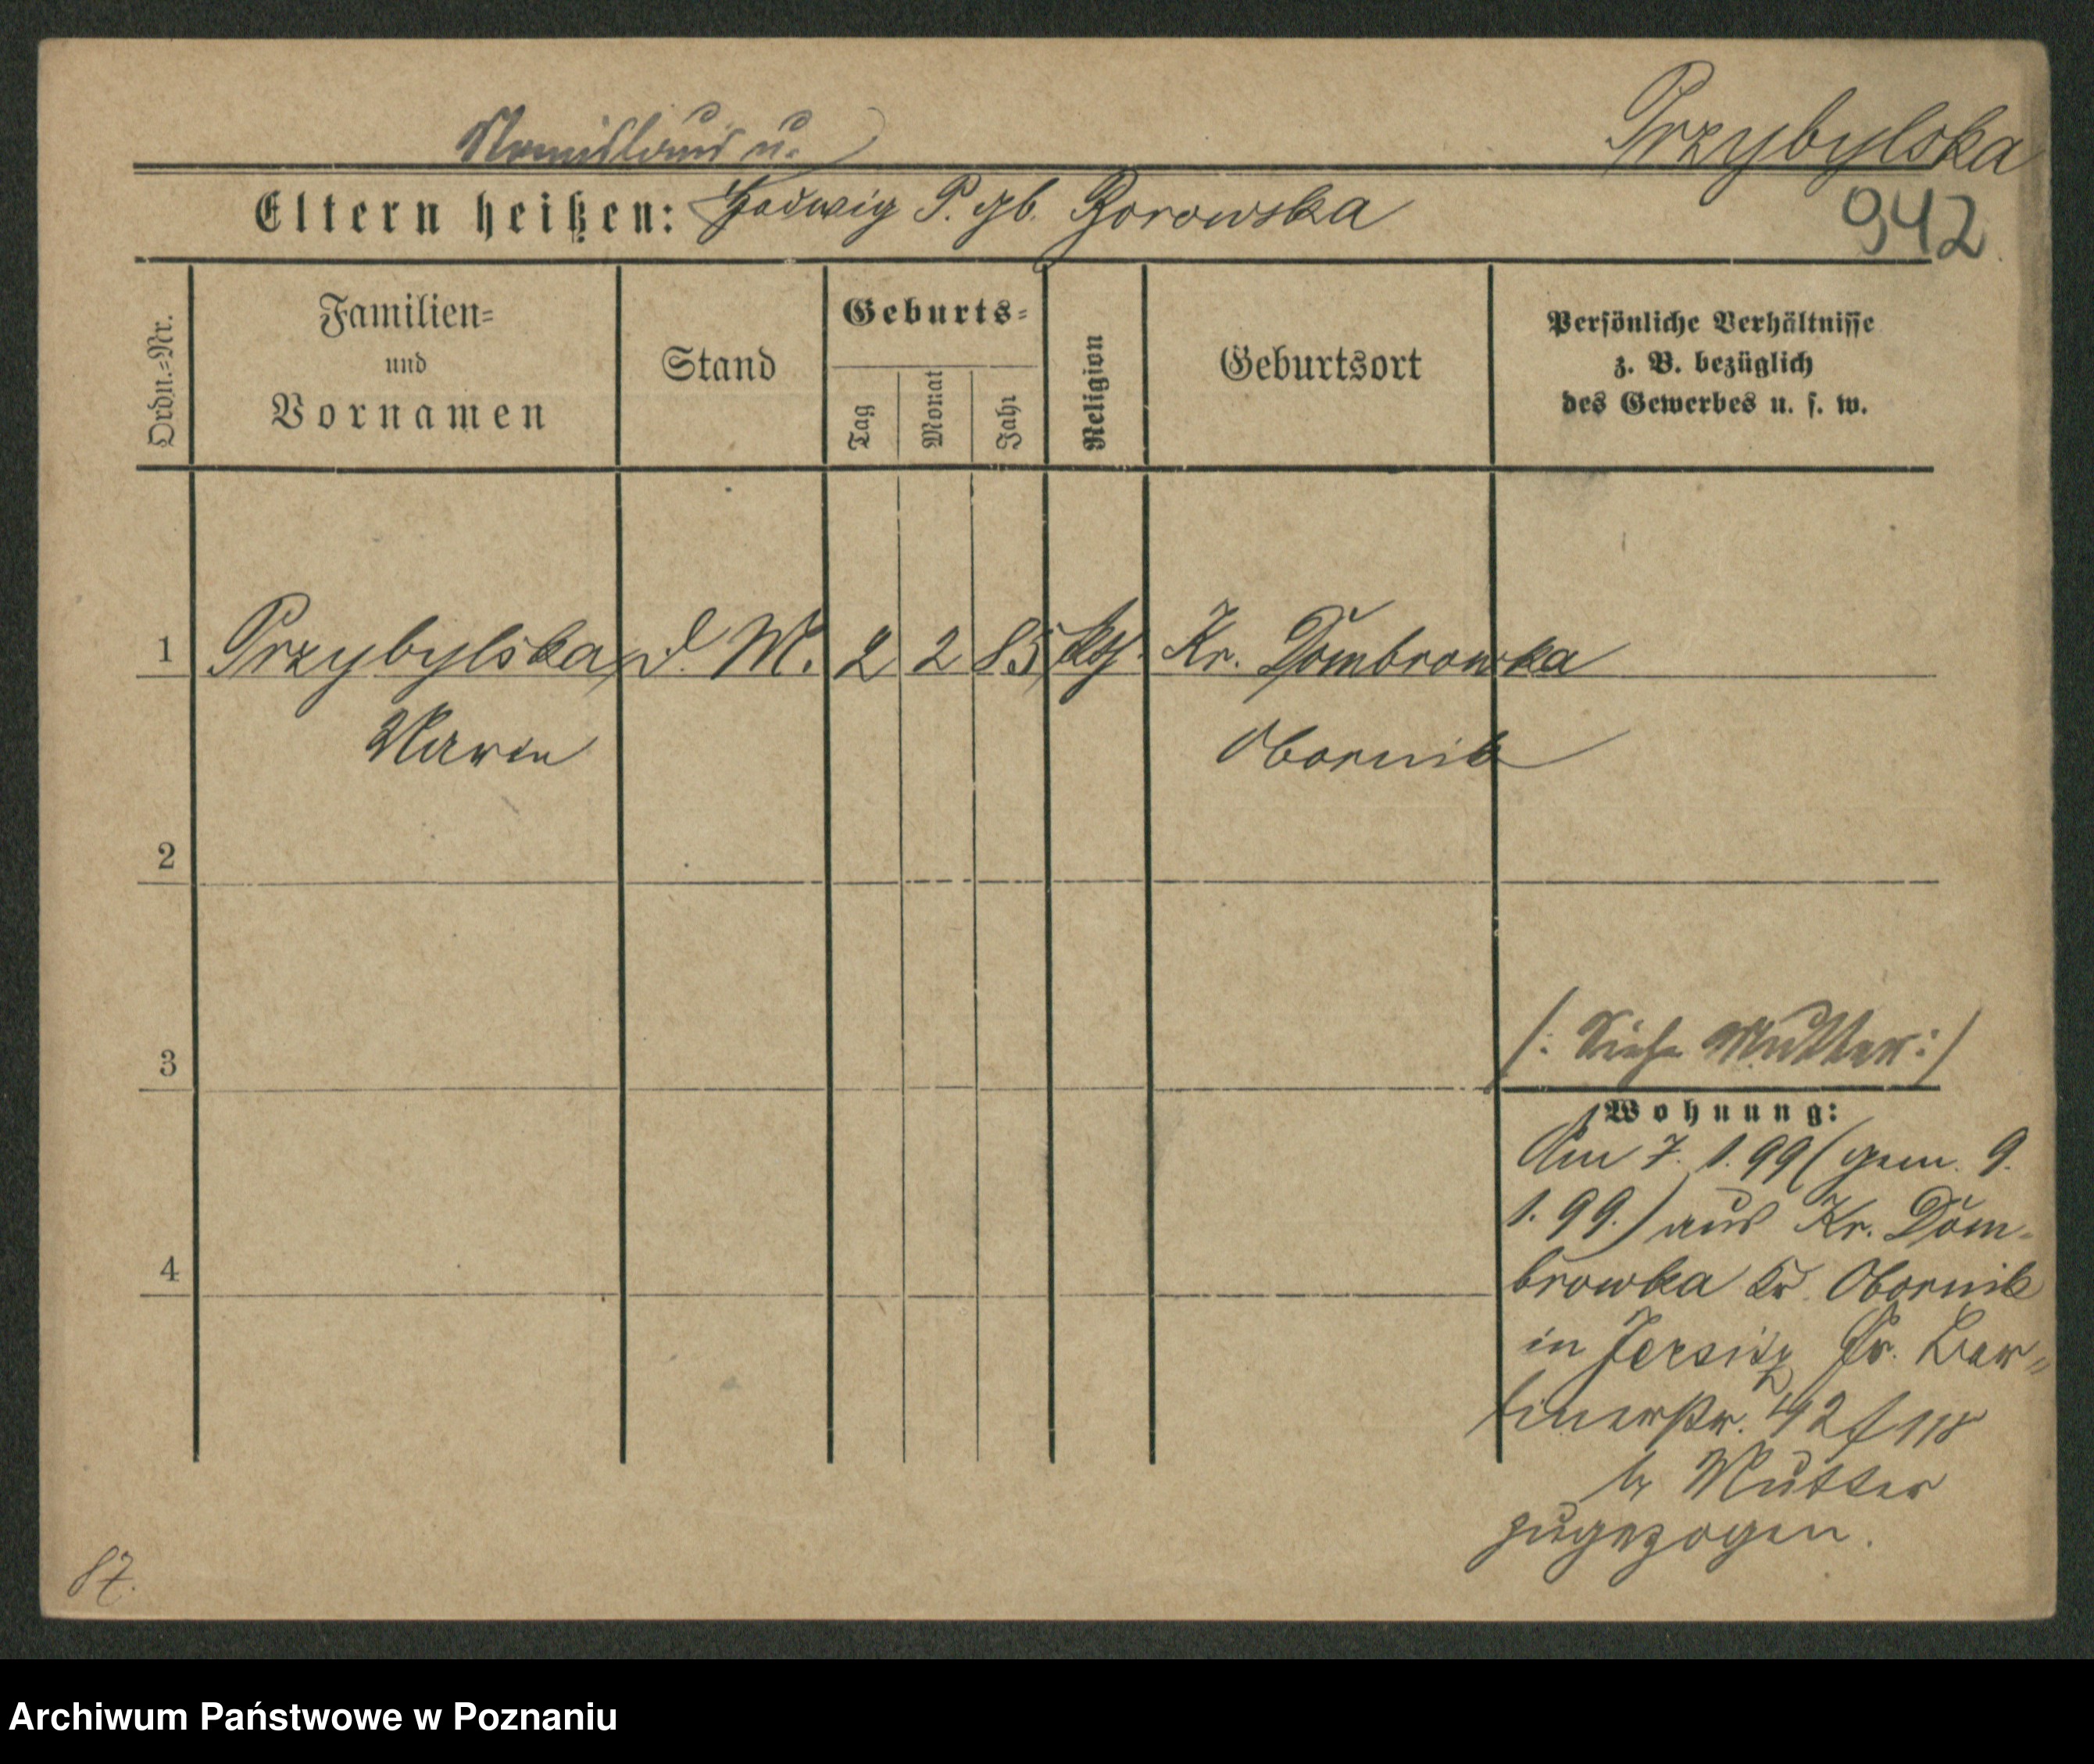 Przybylska
Stanislaus u.
Eltern heißen: Hedwig P. gb. Borowska
942
Ordn.=Nr.
Familien=
und
Vornamen
Stand
Geburts=
Tag
Monat
Jahr
Religion
Geburtsort
Persönliche Verhältnisse
z. B. bezüglich
des Gewerbes u. s. w.
1 Przybylska d. M. 2 2 85 kth. Kr. Dombrowka
Marie Obornik
2
3
(: Siehe Mutter :)
Wohnung:
Am 7. 1. 99 (gem. 9.
1. 99.) aus Kr. Dom-
browka Kr. Obornik
4
in Jersitz Gr. Ber=
linerstr. 42
b Mutter
zugezogen.
87.
Archiwum Państwowe w Poznaniu